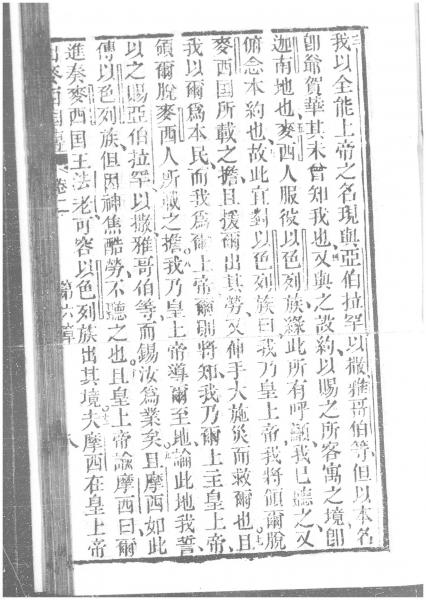 三我以全能上帝之名現與亞伯拉罕以撒雅哥伯等但以本名
卽爺賀華其未曾知我也又與之故約以賜之所客寓之境卽
迦南地也麥西人服役以色列族緣此所有呼籲我已聽之又
俯念本約也故此宜對以色列族曰我乃皇上帝我將領爾脫
麥西國所載之擔且援爾出其勞又伸手大施災而救爾也且
我以爾爲本民而我爲爾上帝爾則將知我乃爾上主皇上帝
領爾脫麥西人所載之擔我乃皇上帝導爾至地論此地我誓
以之賜亞伯拉罕以撒雅哥伯等而錫汝爲業矣且摩西如此
傳以色列族但因神焦酷勞不聽之也且皇上帝諭摩西曰爾
進奏麥西國王法老可容以色列族出其境夫摩西在皇上帝
麥西國傳 卷二 第六章 八